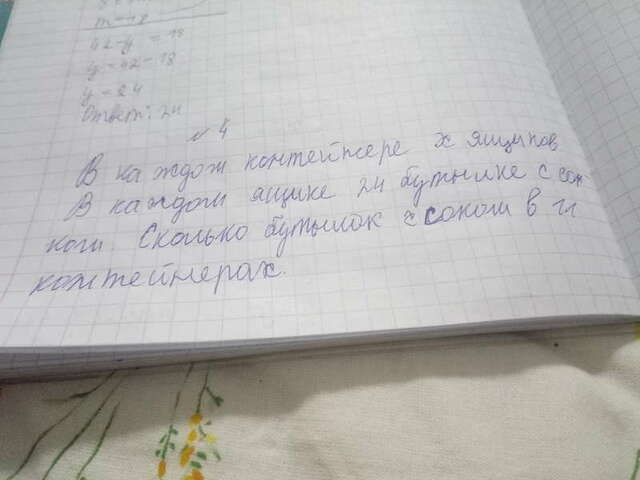 m = 18
42 - y = 18
y = 42 - 18
y = 24
Ответ: 24
№ 4
В каждом контейнере х ящиков
В каждом ящике 24 бутылке с сок
ком. Сколько бутылок с соком в
контейнерах.